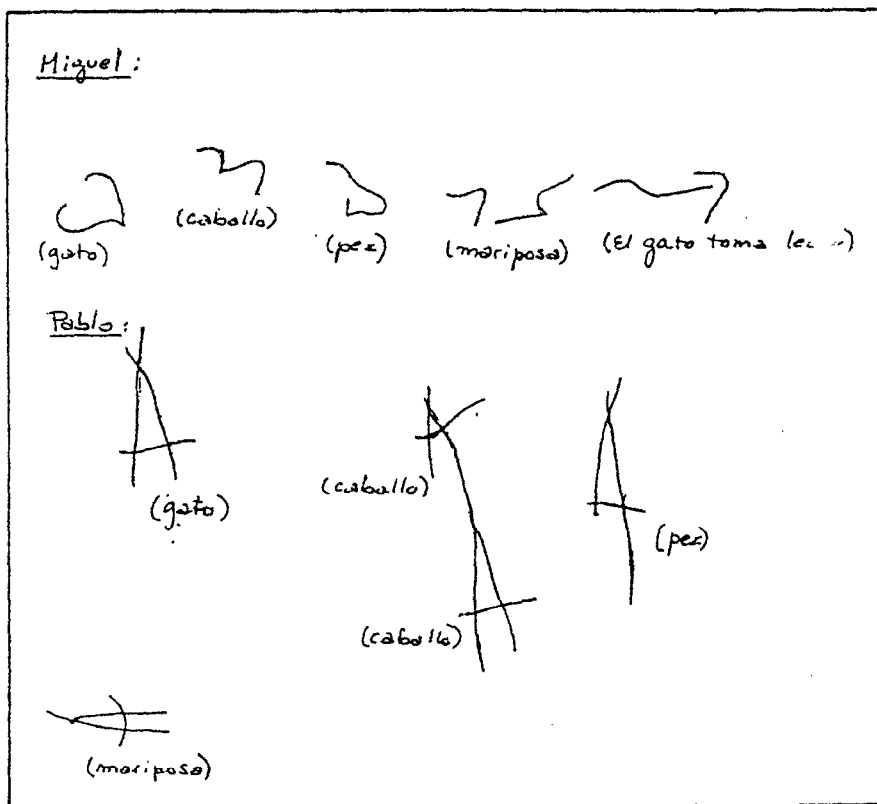 Miguel:
(gato) (caballo) (pez) (mariposa) (El gato toma
Pablo:
(gato) (caballo) (pez)
(caballo)
(mariposa)